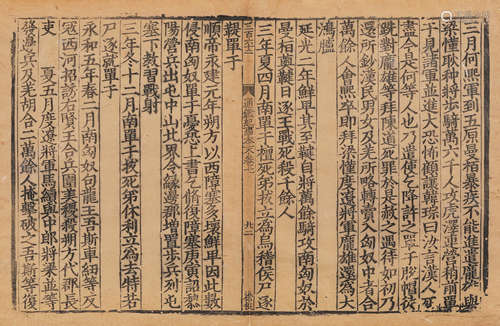 三月何熙軍到五原曼柏暴疾不能進遣龐雄與
梁慬耿种將步騎萬六千人攻虎澤連營稍前單
于見諸軍並進大恐怖顧讓韓琮曰汝言漢人死
盡今是何等人也乃遣使乞降許之單于脫帽徒
跣對龐雄等拜陳道死罪於是赦之遇待如初乃
還所鈔漢民男女及羌所略轉賣入匈奴中者合
萬餘人會熙卒即拜梁慬度遼將軍龐雄還為大
鴻臚
延光二年鮮卑其至鞬自將萬餘騎攻南匈奴於
曼柏薁鞬日逐王戰死殺千餘人
三年夏四月南單于檀死弟拔立為烏稽侯尸逐
鞮單于
順帝永建元年朔方以西障塞多壞鮮卑因此數
侵南匈奴單于憂恐上書乞修復障塞庚寅詔黎
陽營兵出屯中山北界令緣邊郡增置步兵列屯
塞下教習戰射
三年冬十二月南單于拔死弟休利立為去特若
尸逐就單于
永和五年春二月南匈奴句龍王吾斯車紐等反
寇西河招誘右賢王合兵圍美稷殺朔方代郡長
吏 夏五月度遼將軍馬續與中郎將梁並等
發邊兵及羌胡合二萬餘人掩擊破之吾斯等復